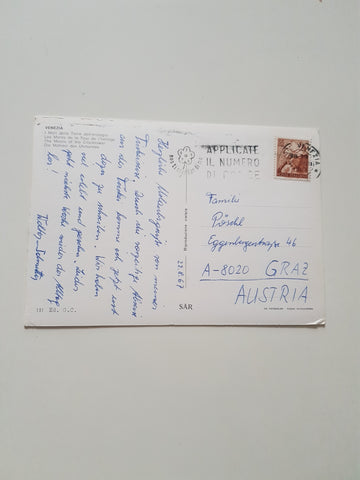 VENEZIA
I Mori della Torre dell'orologio
Les Mores de la Tour de l'horloge
The Moors of the Clocktower
Die Mohren des Uhrturmes
Herzliche Urlaubsgrüße von meiner
Italienreise. Durch die vorzeitige Abreise
aus der Türkei, komme ich jetzt erst
dazu zu schreiben. Wir haben
viel erlebt und gesehen. Leider
geht nächste Woche wieder der Alltag
los!
131 Ed. G.C.
Riproduzione vietata
22.8.67
SAR
APPLICATE
IL NUMERO
DI CODICE
VENEZIA
Familie
Pöschl
Eggenbergerstraße 46
A-8020 GRAZ
AUSTRIA